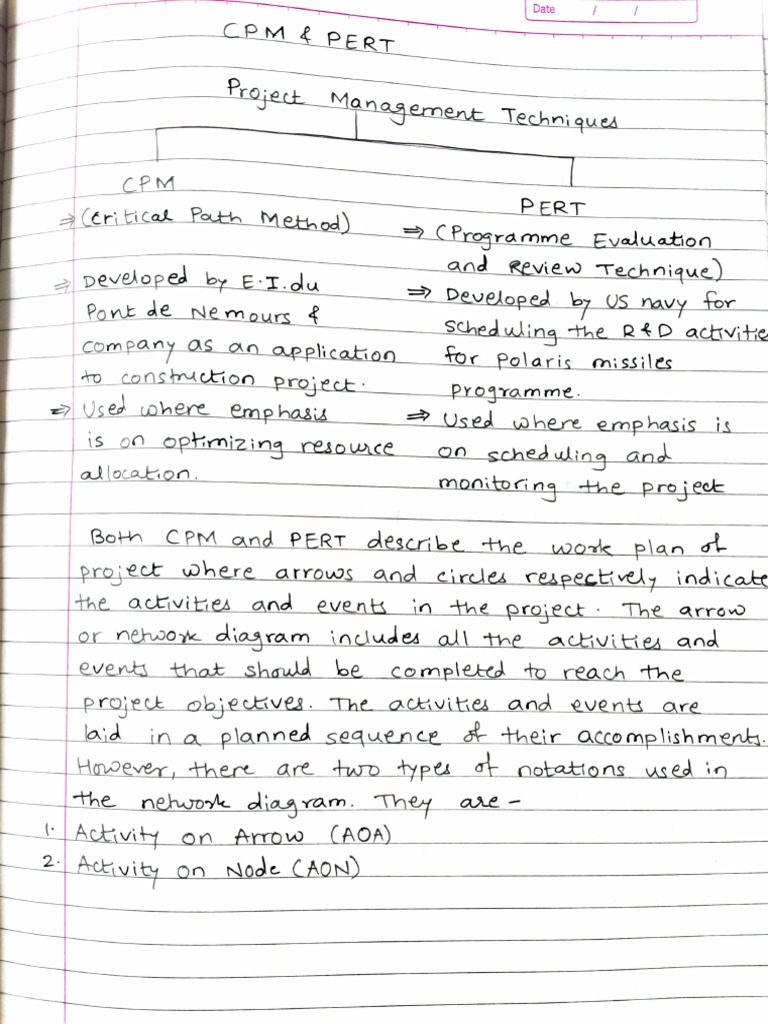 Date / /
CPM & PERT
Project Management Techniques
CPM
⇒ (Critical Path Method)
⇒ Developed by E.I.du
Pont de Nemours &
company as an application
to construction project.
⇒ Used where emphasis
is on optimizing resource
allocation.
PERT
⇒ (Programme Evaluation
and Review Technique)
⇒ Developed by US navy for
scheduling the R&D activitie
for polaris missiles
programme.
⇒ Used where emphasis is
on scheduling and
monitoring the project
Both CPM and PERT describe the work plan of
project where arrows and circles respectively indicate
the activities and events in the project. The arrow
or network diagram includes all the activities and
events that should be completed to reach the
project objectives. The activities and events are
laid in a planned sequence of their accomplishments.
However, there are two types of notations used in
the network diagram. They are -
1. Activity on Arrow (AOA)
2. Activity on Node (AON)